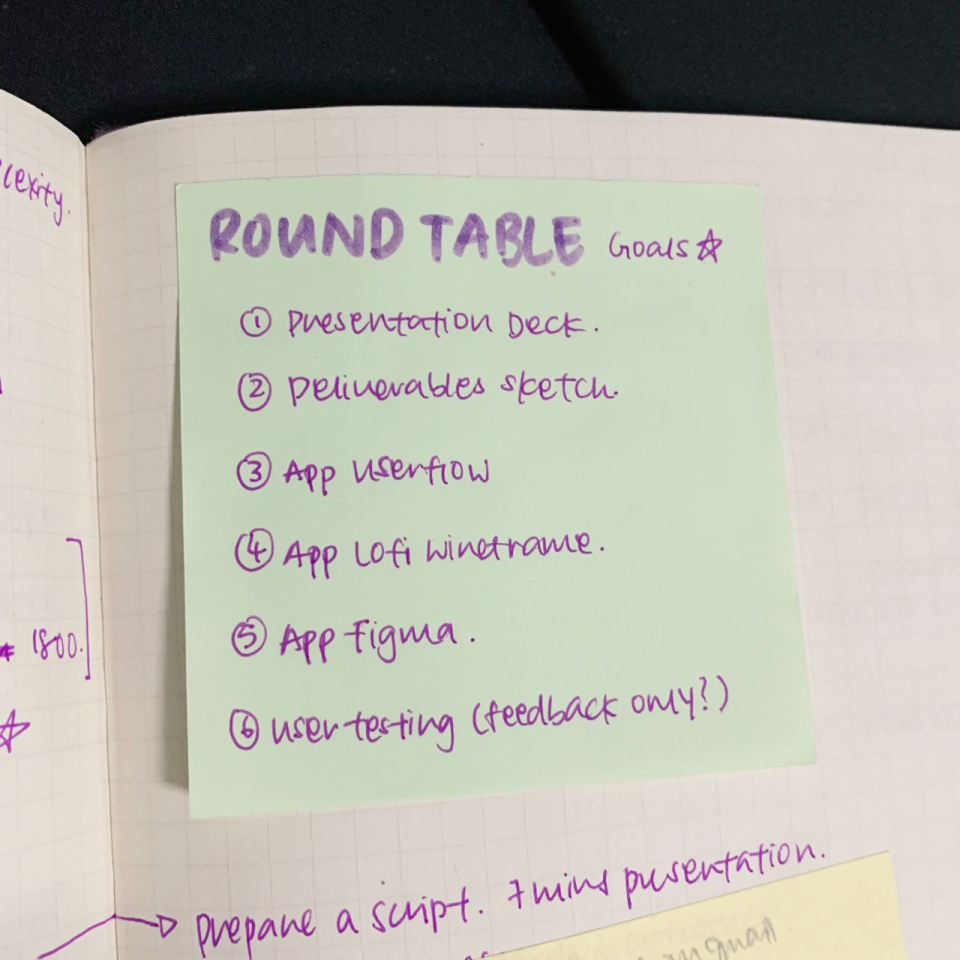 cexity.
ROUND TABLE Goals☆
① Presentation Deck.
② Deliverables sketch.
③ App userflow
④ App Lofi wireframe.
= 1800.
⑤ App Figma.
⑥ user testing (feedback only?)
☆
→ prepare a script. 7 mins presentation.